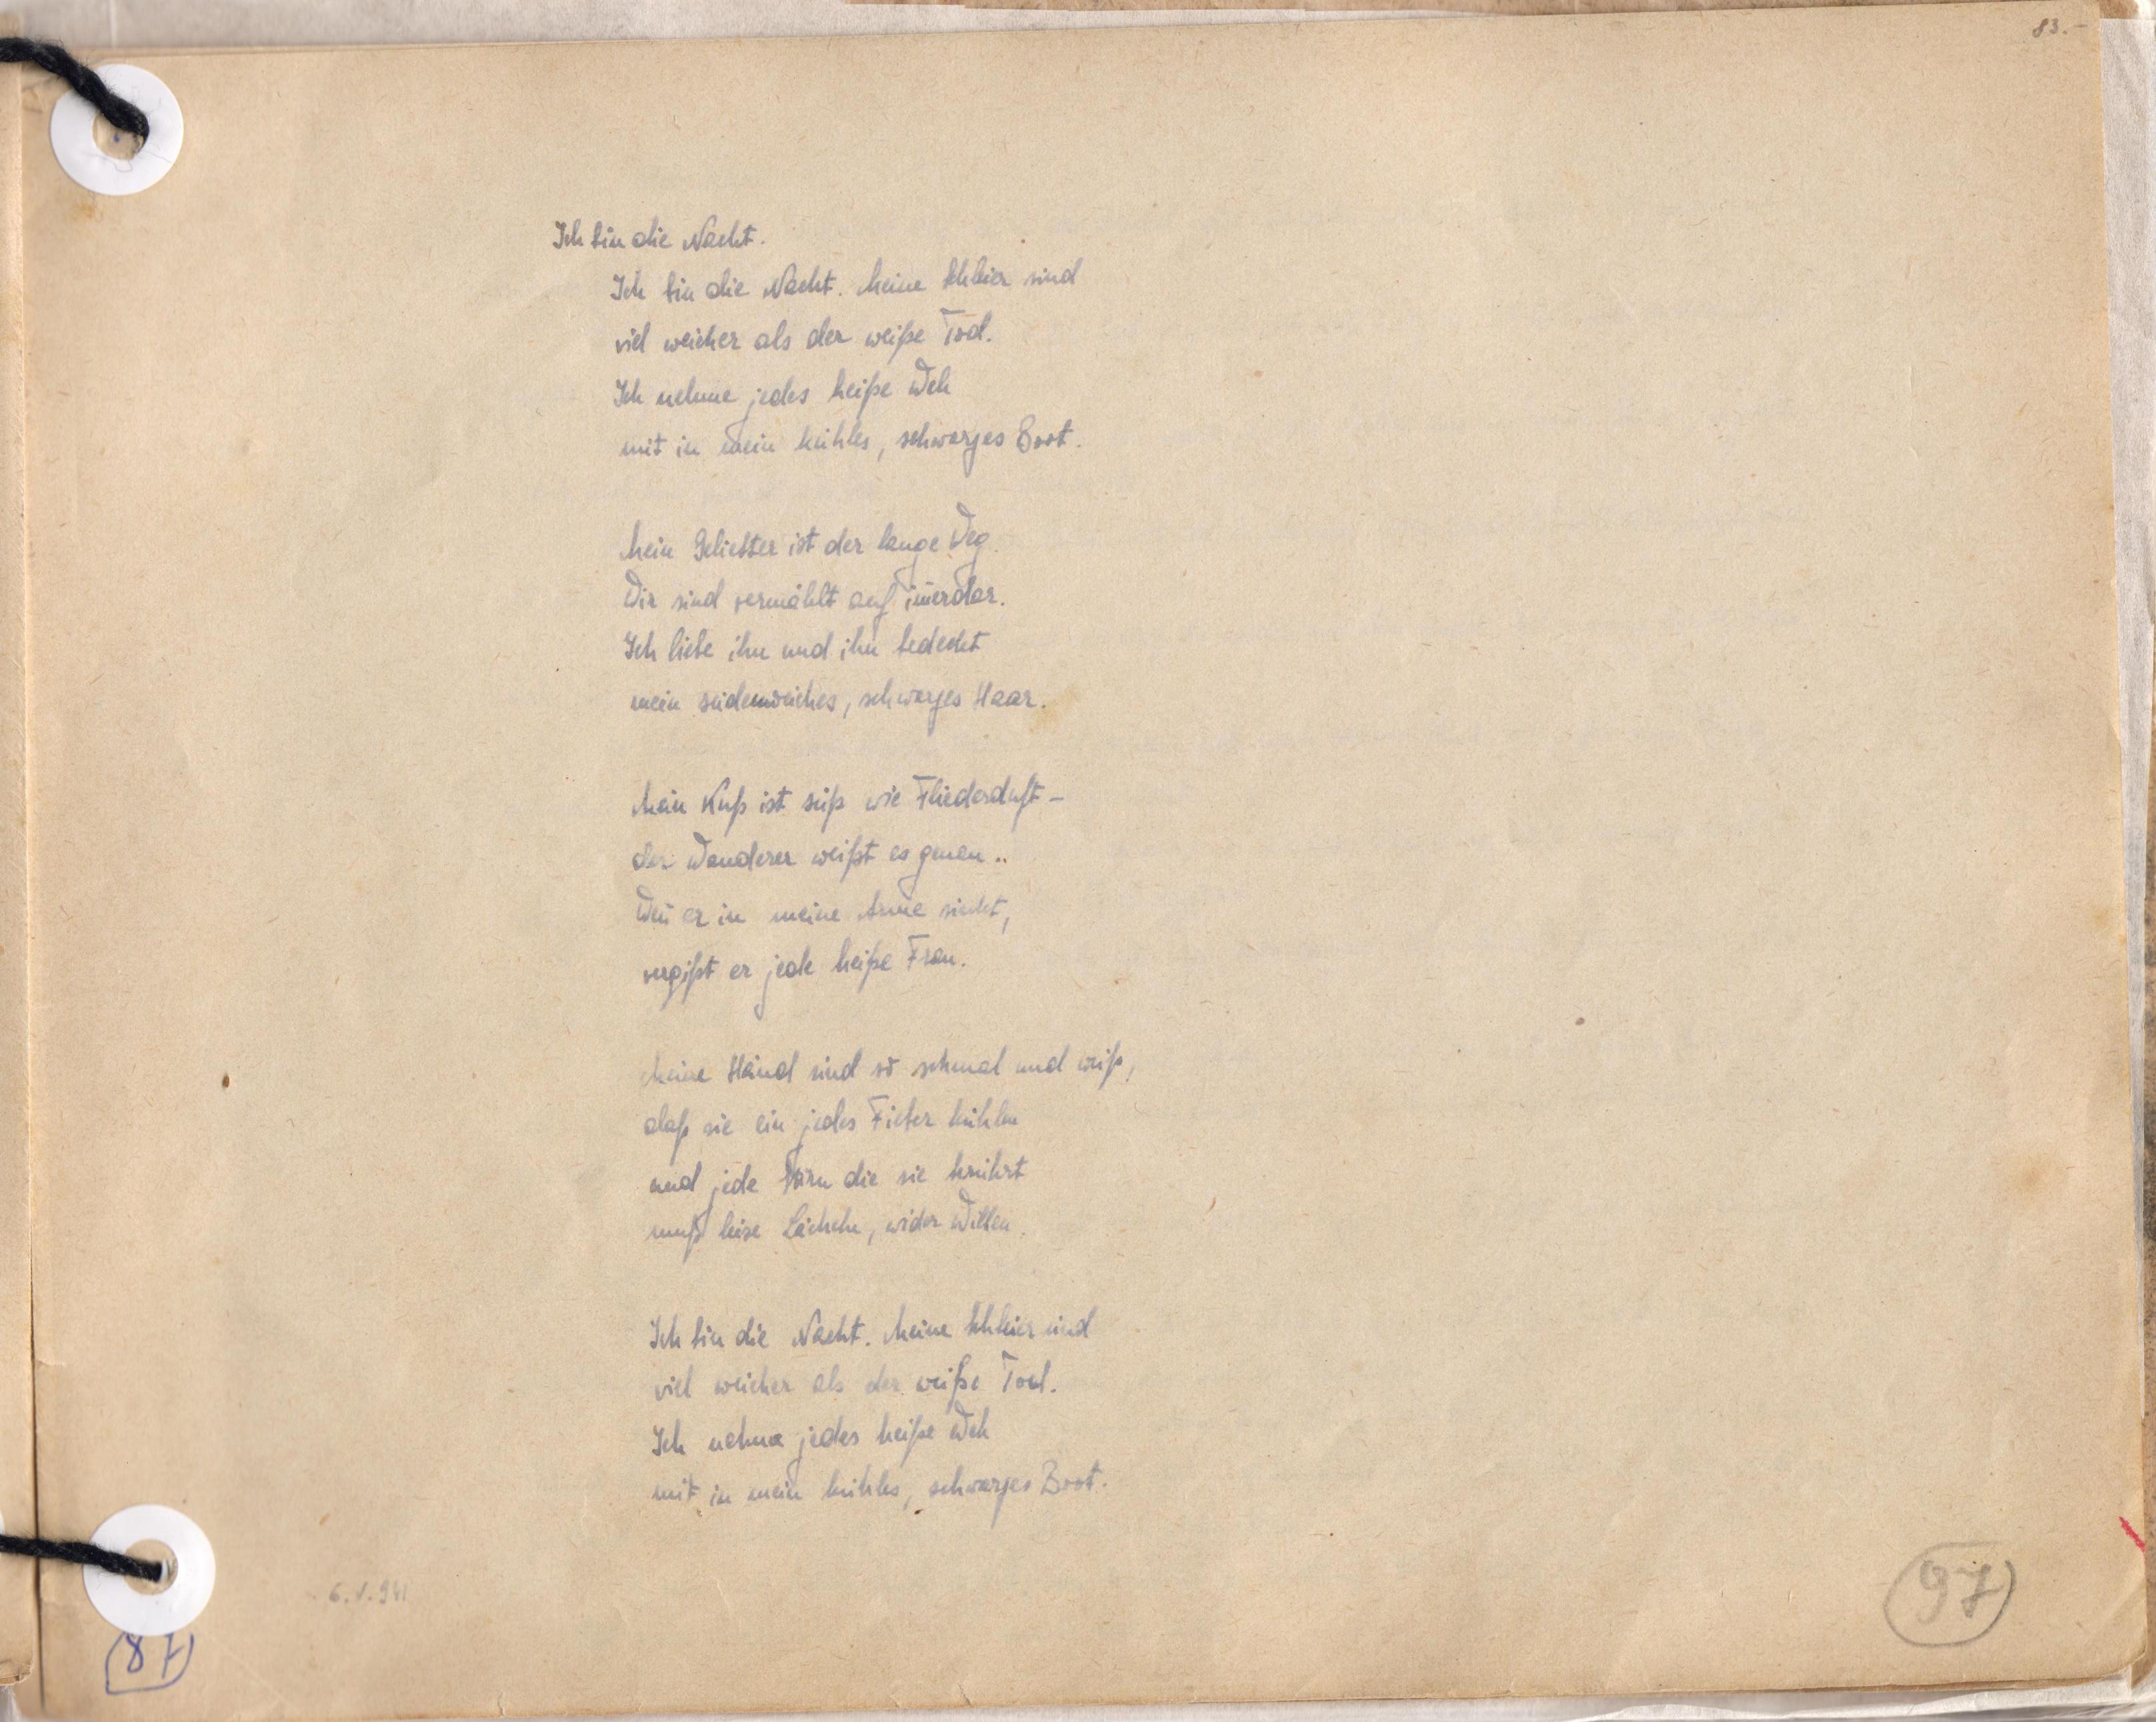 83.-
Ich bin die Nacht.
Ich bin die Nacht. Meine Schleier sind
viel weicher als der weiße Tod.
Ich nehme jedes heiße Weh
mit in mein kühles, schwarzes Boot.
Mein Geliebter ist der lange Weg.
Wir sind vermählt auf im̄erdar.
Ich liebe ihn und ihn bedeckt
mein seidenweiches, schwarzes Haar.
Mein Kuß ist süß wie Fliederduft –
der Wanderer weißt es genau..
Wen̄ er in meine Arme sinkt,
vergißt er jede heiße Frau.
Meine Händ sind so schmal und weiß,
daß sie ein jedes Fieber kühlen
und jede Stirn die sie berührt
muß leise Lächeln, wider Willen.
Ich bin die Nacht. Meine Schleier sind
viel weicher als der weiße Tod.
Ich nehme jedes heiße Weh
mit in mein kühles, schwarzes Boot.
6.V.941
87
97